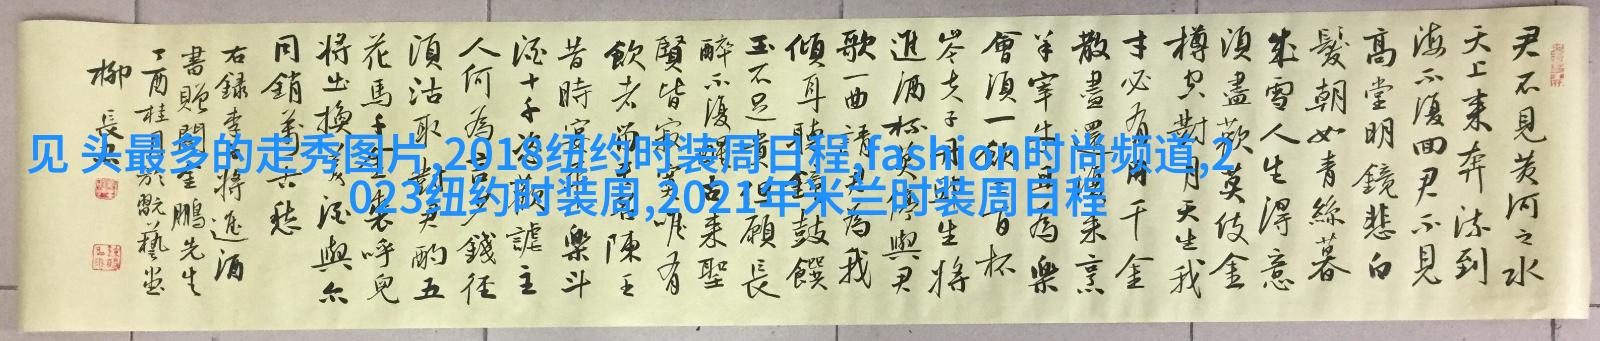 君不見黃河之水
天上來奔流到
海不復回君不見
高堂明鏡悲白
髮朝如青絲暮
成雪人生得意
須盡歡莫使金
樽空對月天生我
才必有用千金
散盡還復來烹
羊宰牛且為樂
會須一飲百杯
岑夫子丹丘生將
進酒杯莫停與君
歌一曲請君為我
傾耳聽鐘鼓饌
玉不足貴但願長
醉不復醒古來聖
賢皆寂寞唯有
飲者留其名陳王
昔時宴平樂斗
酒十千恣歡謔主
人何為言少錢徑
須沽取對君酌五
花馬千金裘呼兒
將出換美酒與尔
同銷萬古愁
右錄李白將進酒
書贈金鵬先生
丁酉桂月於翫藝堂
柳長
见 头最多的走秀图片,2018纽约时装周日程,fashion时尚频道,2
023纽约时装周,2021年米兰时装周日程